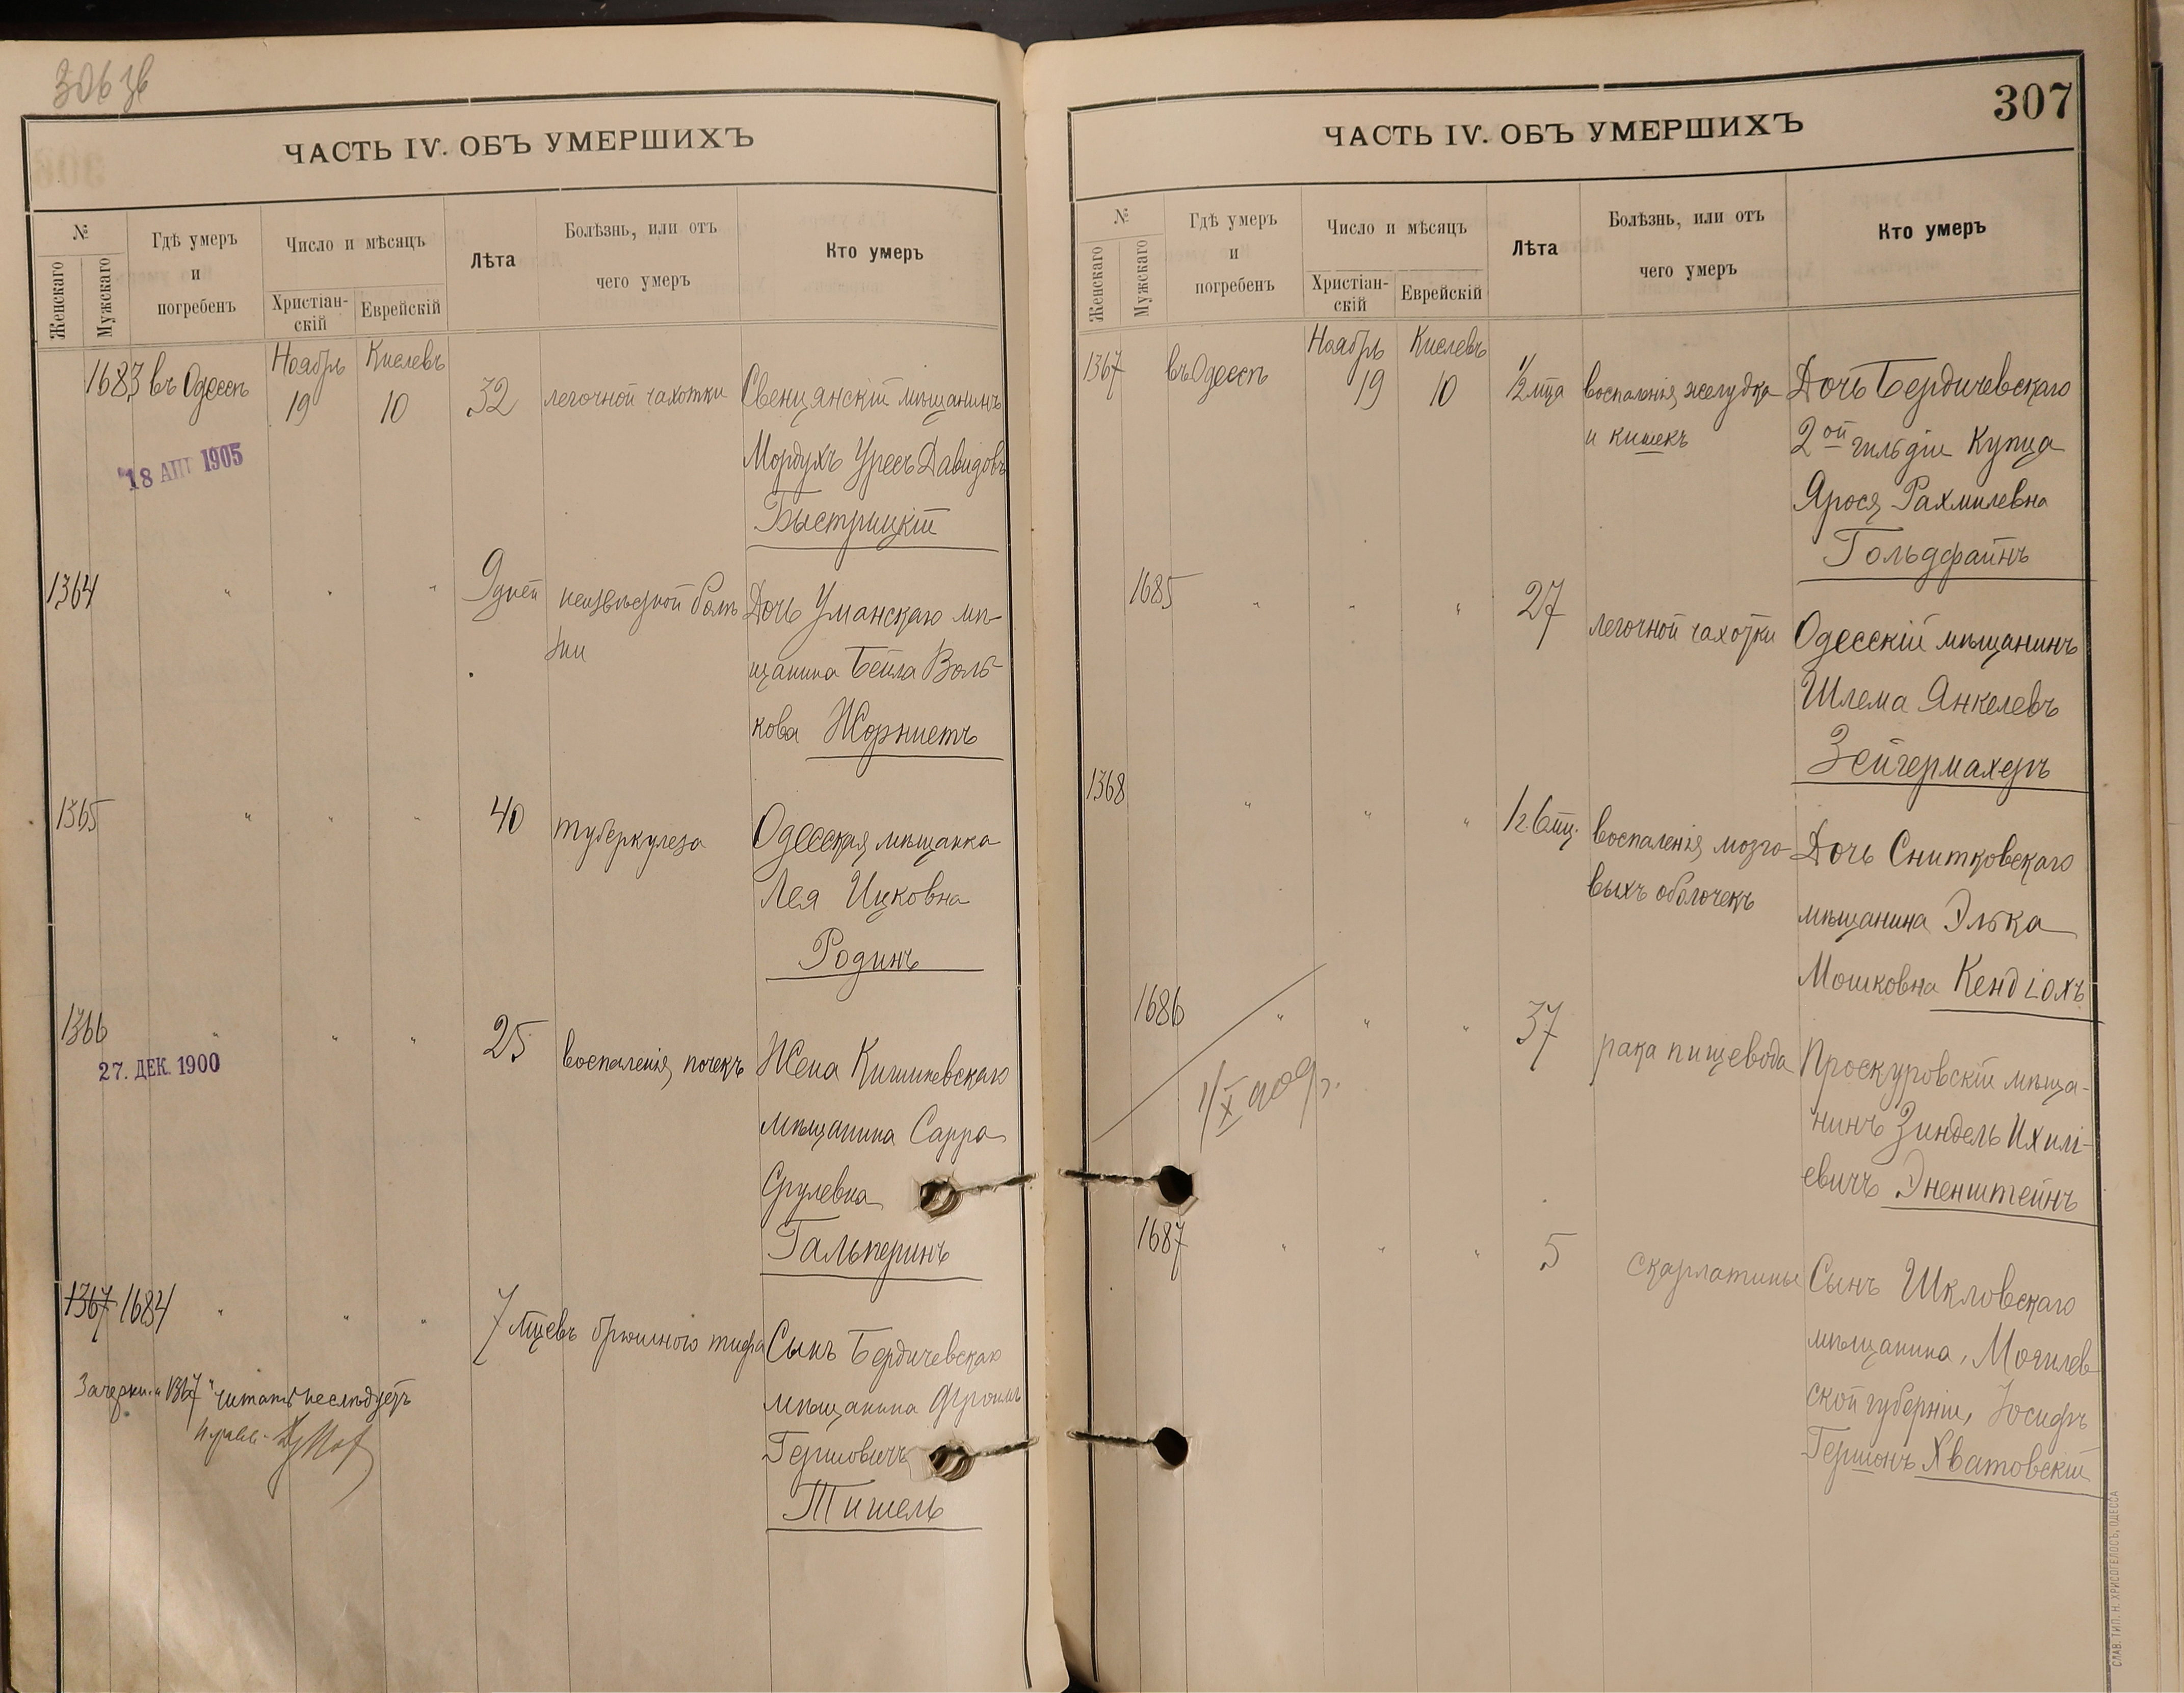 306 зв
ЧАСТЬ IV. ОБЪ УМЕРШИХЪ
№
Женскаго
Мужскаго
Гдѣ умеръ
и
погребенъ
Число и мѣсяцъ
Христіан-
скій
Еврейскій
Лѣта
Болѣзнь, или отъ
чего умеръ
Кто умеръ
Ноябрь Кислевъ
1683 въ Одессѣ 19 10 32 легочной чахотки Свенцянскій мѣщанинъ
Мордухъ Уресъ Давидовъ
18 АПГ 1905
Быстрицкій
1364 " " " 9 дней неизвѣстной болѣ- Дочь Уманскаго мѣ-
зни
щанина Бейла Воль-
кова Жорнистъ
1365 " " " 40 туберкулеза Одесская мѣщанка
Лея Ицковна
Родинъ
1366 " " " 25 воспаленія почекъ Жена Кишиневскаго
27. ДЕК. 1900
мѣщанина Сарра
Срулевна
Гальперинъ
1367 1684 " " " 7 мцевъ брюшного тифа Сынъ Бердичевскаго
мѣщанина Фроимъ
Гершовичъ
Тишель
Зачеркн. "1367" читать неслѣдуетъ
ЧАСТЬ IV. ОБЪ УМЕРШИХЪ
307
№
Женскаго
Мужскаго
Гдѣ умеръ
и
погребенъ
Число и мѣсяцъ
Христіан-
скій
Еврейскій
Лѣта
Болѣзнь, или отъ
чего умеръ
Кто умеръ
Ноябрь Кислевъ
1367 въ Одессѣ 19 10 1/2 мца воспаленія желудка Дочь Бердичевскаго
и кишекъ
2ой гильдіи Купца
Ярося Рахмилевна
Гольдфайнъ
1685 " " " 27 легочной чахотки Одесскій мѣщанинъ
Шлема Янкелевъ
Зейгермахеръ
1368 " " " 1 г. 6 мц. воспаленія мозго- Дочь Снитковскаго
выхъ оболочекъ
мѣщанина Элька
Мошковна Кендіохъ
1686 " " " 37 рака пищевода Проскуровскій мѣща-
нинъ Зиндель Ихилі-
евичъ Эненштейнъ
1687 " " " 5 скарлатины Сынъ Шкловскаго
мѣщанина, Могилев-
ской губерніи, Іосифъ
Гершонъ Хватовскій
СЛАВ. ТИП. Н. ХРИСОГЕЛОСЪ, ОДЕССА